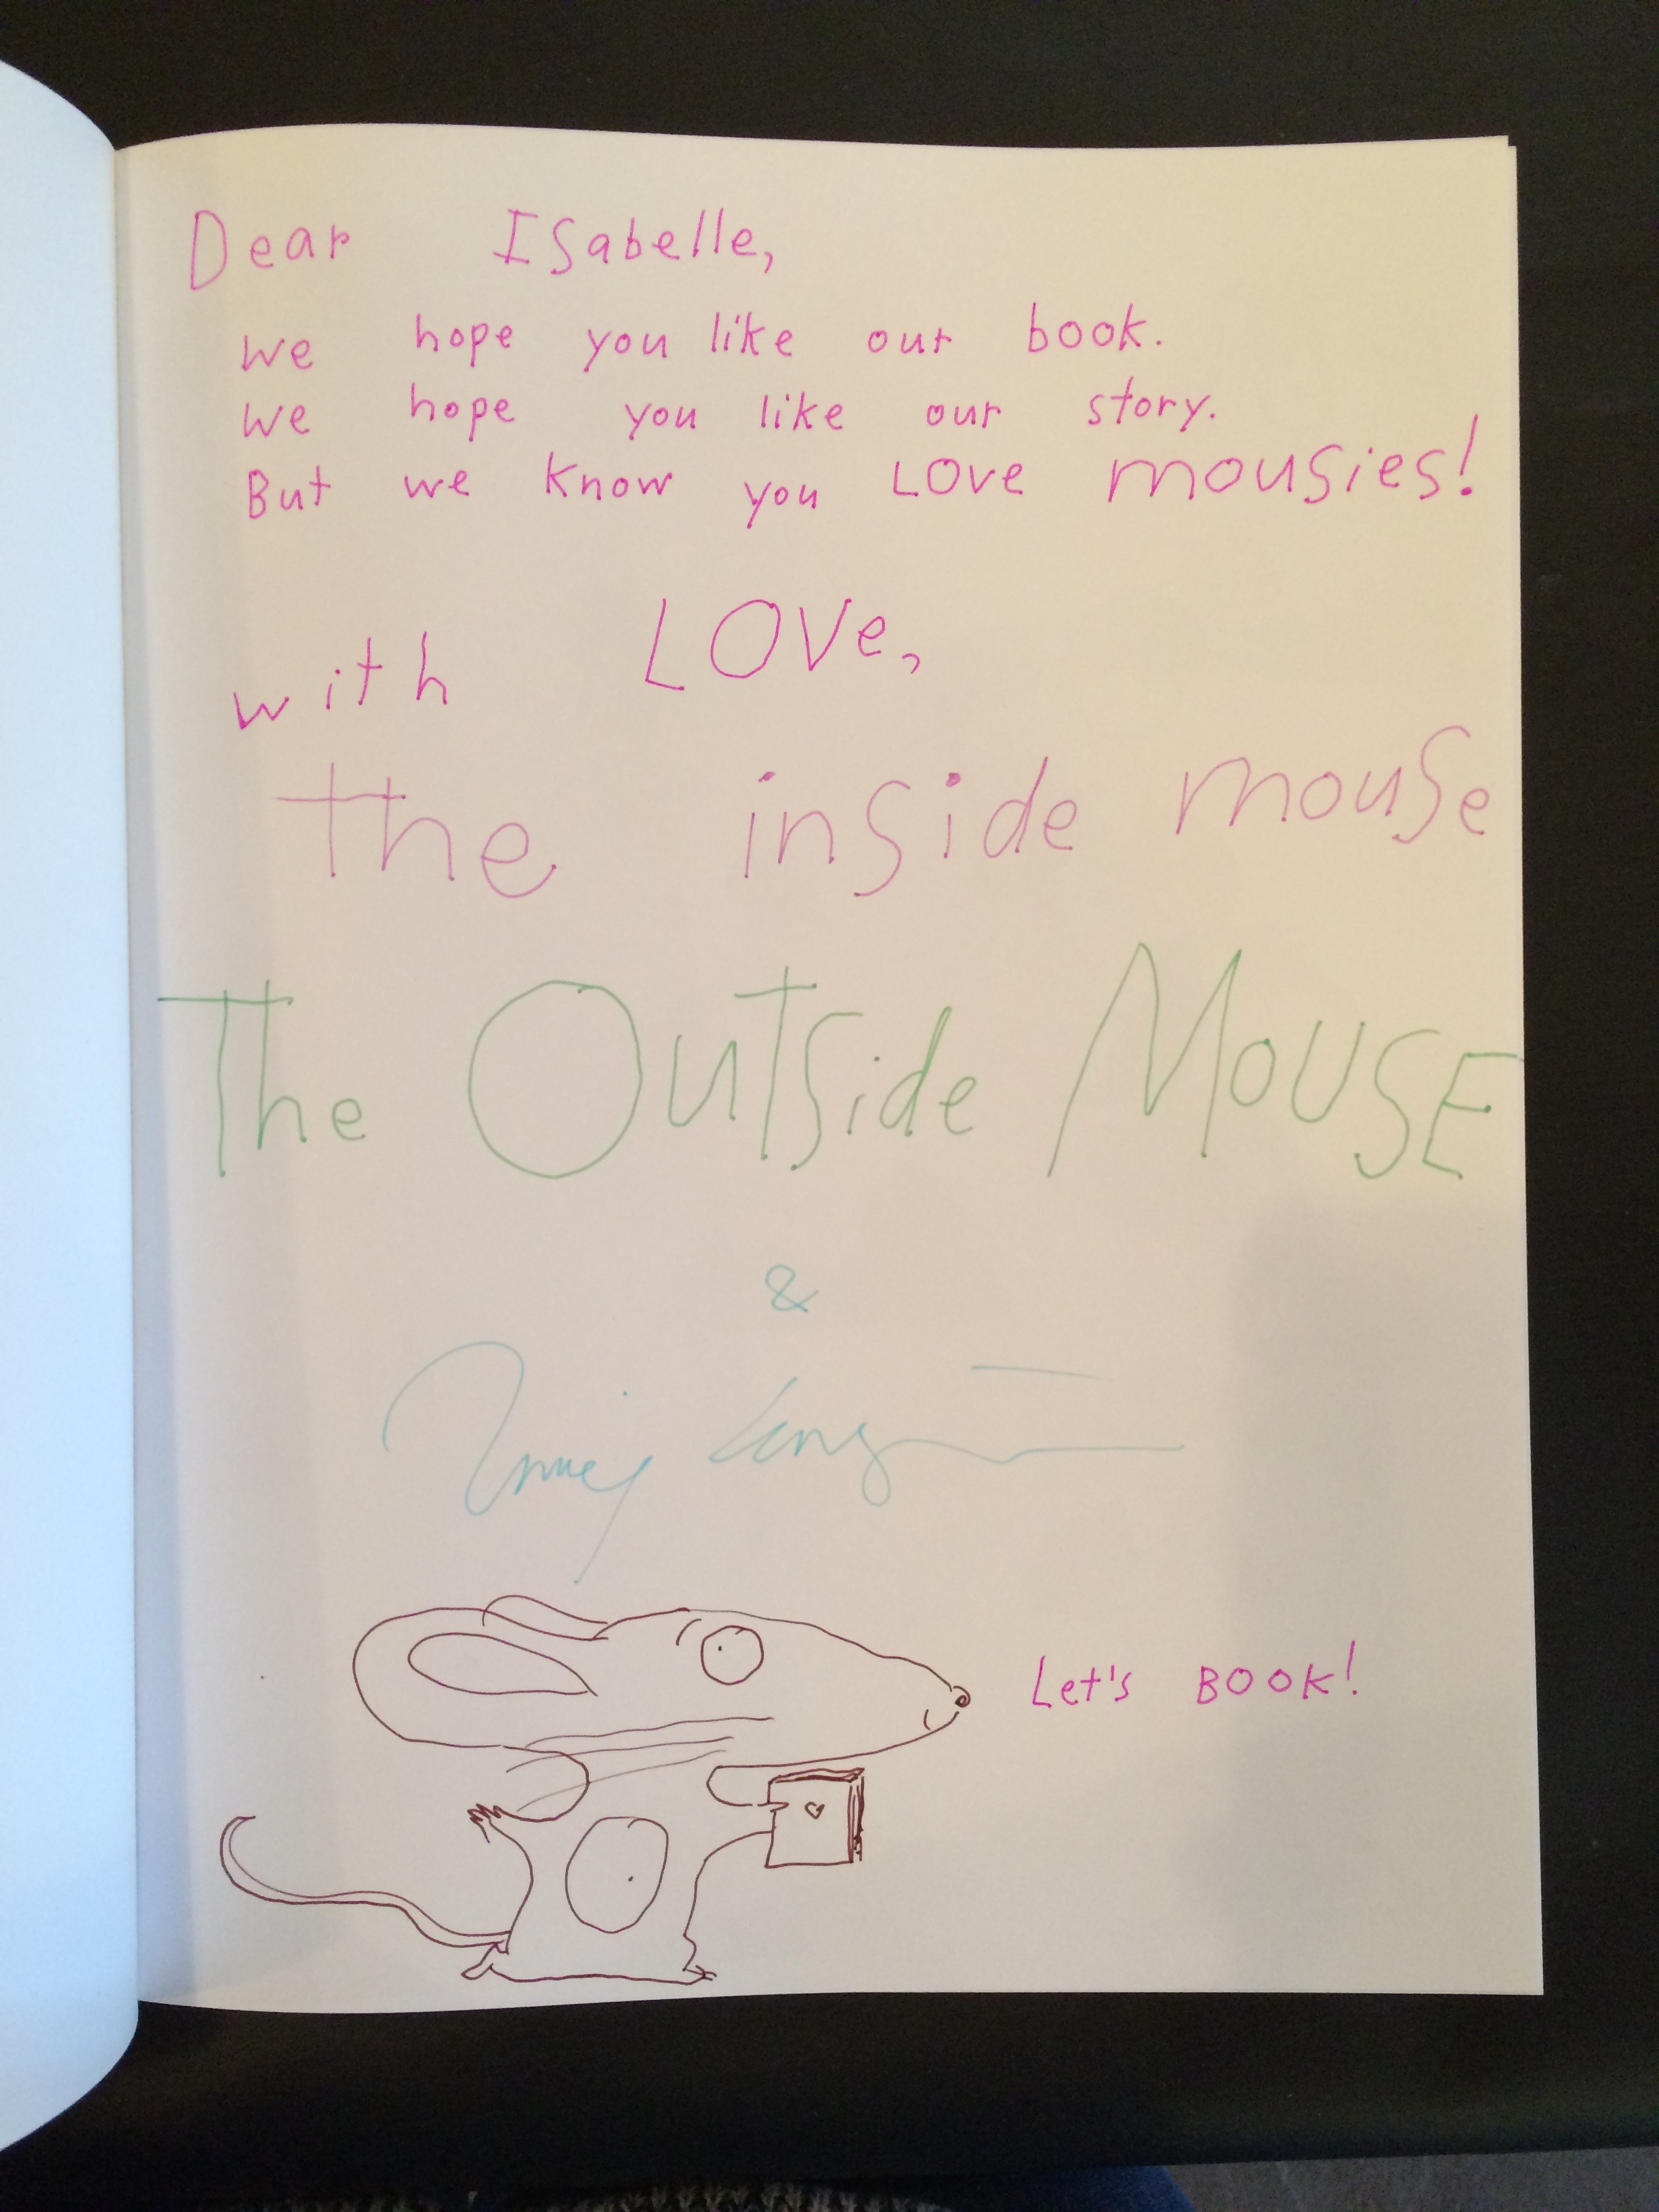 Dear Isabelle,
we hope you like our book.
we hope you like our story.
But we know you LOVe mousies!
with LOVe,
the inside mouse
The Outside MOUSE
&
Let's BOOK!